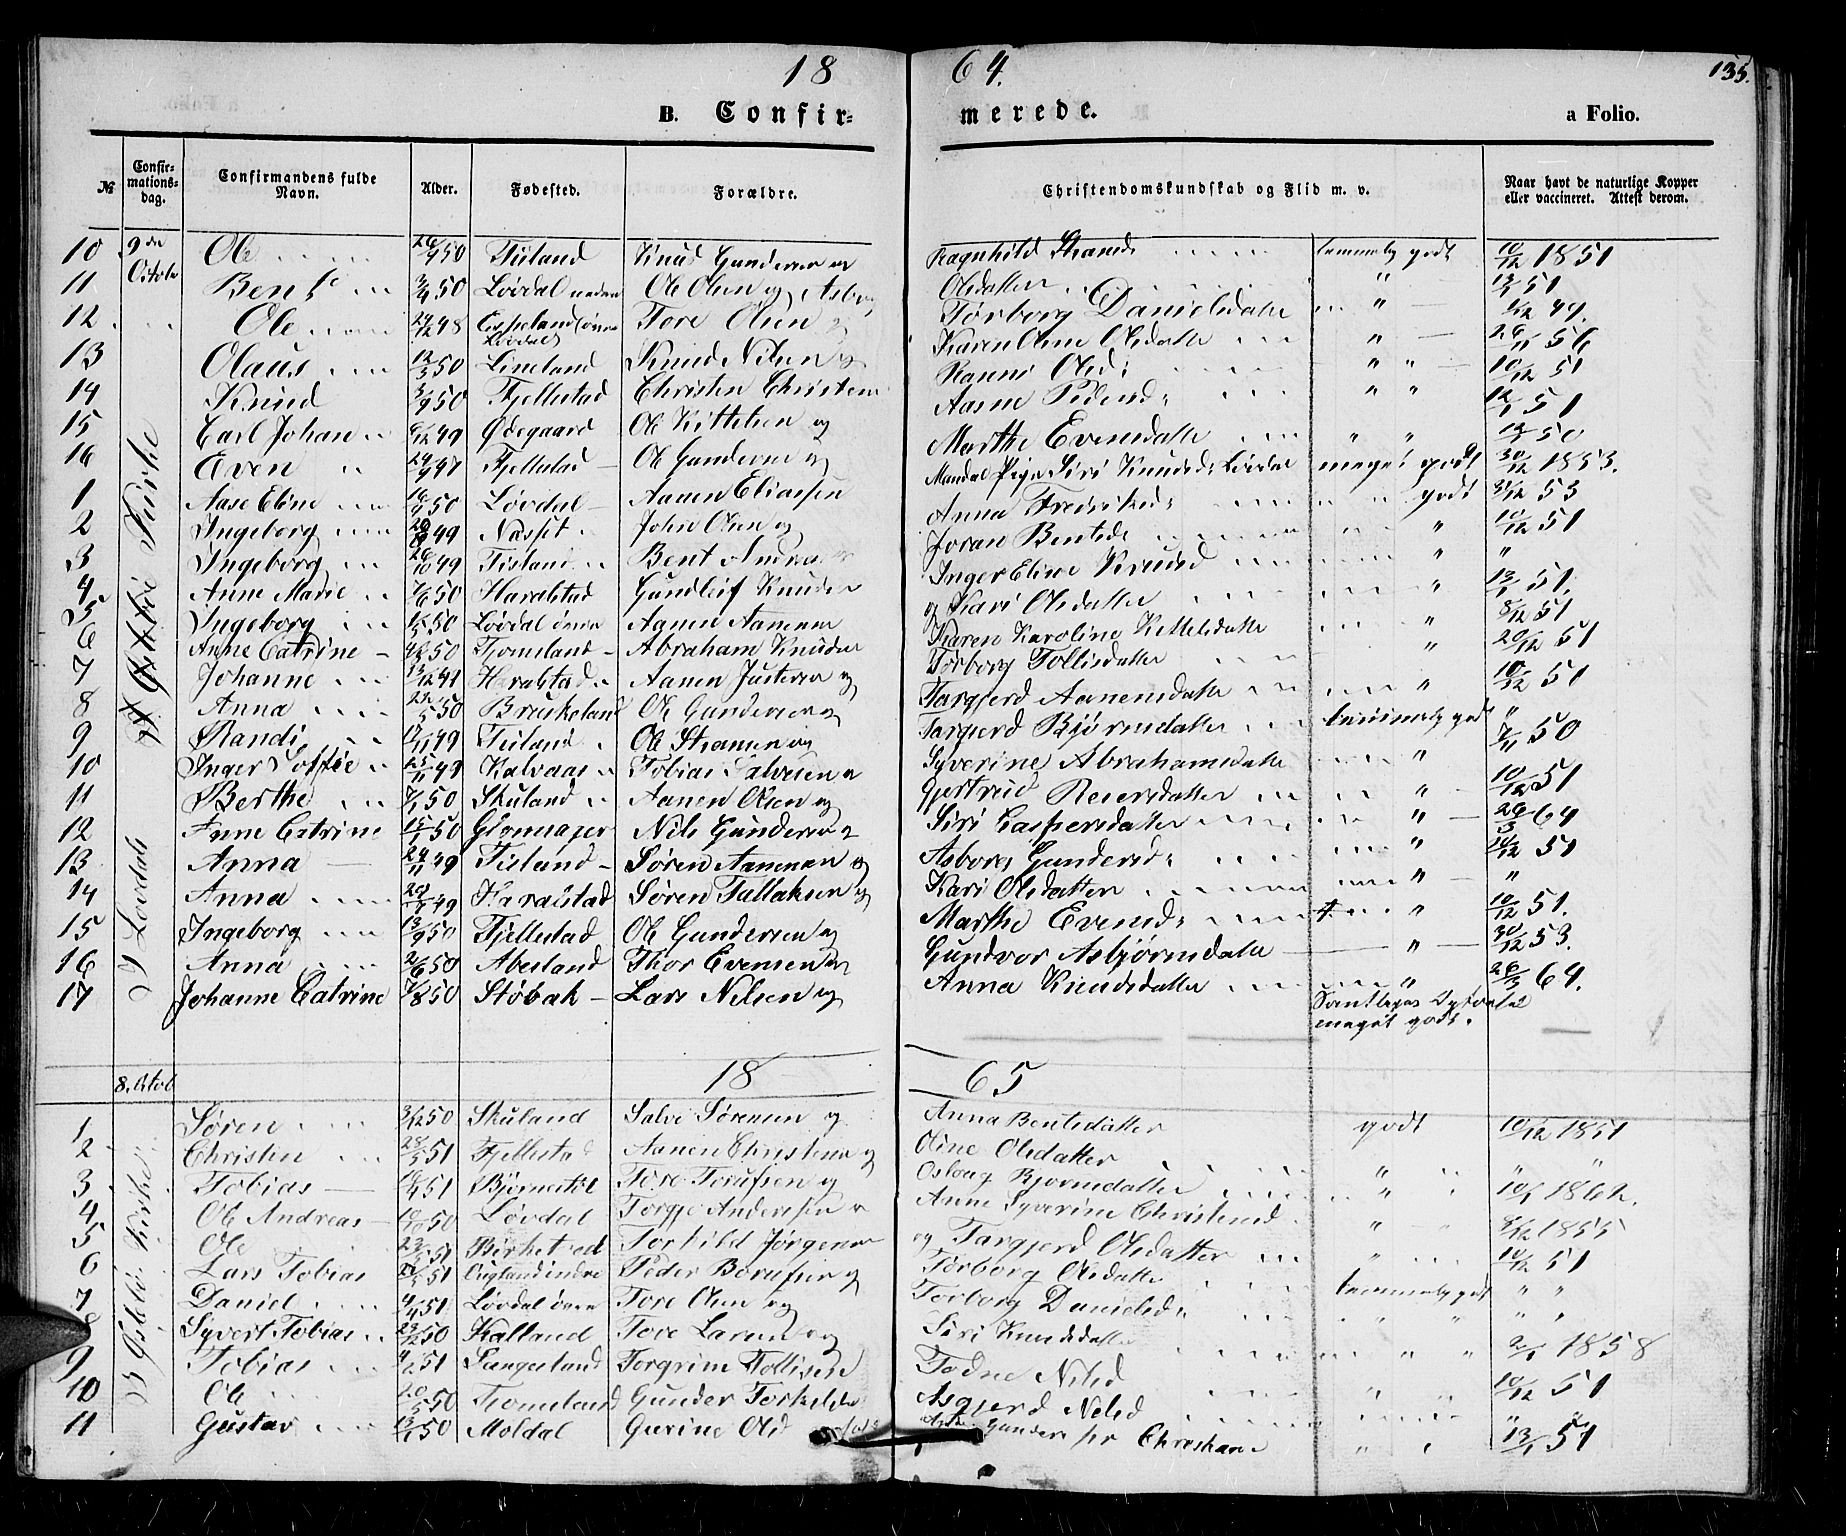 18 64. 135.
B. Confirmerede. a Folio.
№ Confirmationsdag. Confirmandens fulde Navn. Alder. Fødested. Forældre. Christendomskundskab og Flid m. v. Naar havt de naturlige Kopper eller vaccineret. Attest derom.
10 9de Ole 26/4 50 Tisland Knud Gundersen og Ragnhild temmelig godt 10/12 1851
11 Octobr Bent 3/4 50 Løvdal neden Ole Olsen og Asborg Olsdatter " 13/1 51
12 Ole 24/12 48 Espeland (øvre Løvdal) Tore Olsen og Tørborg Danielsdatter " 1/12 49.
13 Olaus 12/3 50 Lineland Knud Nilsen og Karen Oline Olsdatter " 26/11 56
14 Knud 3/9 50 Fjellestad Christen Christensen Ranni Olsd: " " 10/12 51
15 Carl Johan 6/12 49 Ødegaard Ole Kittelsen og Aasne Pedersd: " " 12/1 51
16 Even 24/9 47 Fjellestad Ole Gundersen og Marthe Evensdatter " " 50
1 Aase Eline 16/5 50 Løvdal Aanen Eliassen Pige Siri Knudsd: Løvdal meget godt 30/12 1853.
2 Ingeborg 49 Nasset John Olsen og Anna Fredriksd: godt 31/12 53
3 Ingeborg 26/10 49 Tisland Bent Joran Bentsd: " 10/12 51
4 Anne Marie 7/6 50 Haralstad Gundleif Knudsen Inger Eline Knudsd " "
5 Ingeborg 50 Løvdal øvre Aanen Aanensen og Kari Olsdatter " 13/1 51.
6 Anne Catrine 50 Tjomeland Abraham Knudsen Karen Karoline Kittelsdatter " 8/12 51
7 Johanne 13/12 49 Haralstad Aanen Justesen og Torborg Tollisdatter " 20/12 51
8 Anna 50 Bruskeland Ole Gundersen og Targjerd Aanensdatter " 10/12 51
9 Randi 49 Tisland Ole og Targjerd Bjørnsdatter temmelig godt "
10 Inger Soffie 25/11 49 Kalvaas Tobias Salvesen og Syverine Abrahamsdatter " 7/11 50
11 Berthe 7/1 50 Skuland Aanen Olsen og Gjertrud Reiersdatter " 10/12 51
12 Anne Catrine 15/1 50 Nils Gundersen og Siri Caspersdatter " 26/3 64
13. Anna 24/11 49 Tisland Søren Aanensen og Asborg Gundersd: " 10/12 51
14 Anna 49 Haralstad Søren Tallaksen og Kari Olsdatter " "
15 Ingeborg 13/9 50 Fjellestad Ole Gundersen og Marthe Evensd: " 10/12 51.
16 Anna 2/6 50 Abesland Thor Evensen og Gundvor Asbjørnsdatter " 30/12 53.
17 Johanne Catrine 7/8 50 Støbak Lars Nilsen og Anna Knudsdatter " 26/3 64.
meget godt.
8. Octob 18 65
1 Søren 3/12 50 Skuland Salve Sørensen og Anna Bentsdatter godt 10/12 1851
2 Christen 28/5 51 Fjellestad Aanen Christensen og Oline Olsdatter " "
3 Tobias 51 Bjørnestøl Tore Torufsen og Oslaug Bjørnsdatter " 10/1 1862.
4 Ole Andreas 10/10 50 Løvdal Torgje Andersen og Anne Syverine Christensd. " 8/12 1855
5 Ole 23/3 51 Torkild Jørgensen og Targjerd Olsdatter " 10/12 51
6 Lars Tobias 51 Ouglandindre Peder Borufsen og Torborg Olsdatter temmelig godt " "
7 Daniel 9/4 51 Løvdal øvre Tore Olsen og Torborg Danielsd: " "
8 Syvert Tobias 23/12 50 Kalland Tore Larsen og Siri Knudsdatter " " 2/1 1858
9 Tobias 4/2 51 Sangesland Torgrim Tollisen Todne Nilsd " " 10/12 51
10 Ole 20/5 50 Tromeland Gunder Torkildsen Asgjerd Nilsd " "
11 Gustav 13/1 50 Moldal Gurine Olsd for Christian " 13/1 51